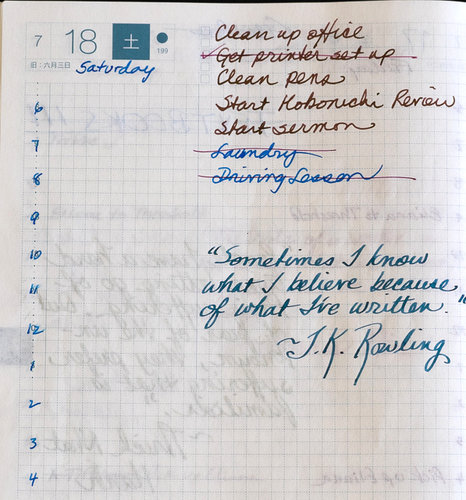 7 18 土 199
旧:六月三日
Saturday
Clean up office
Get printer set up
Clean pens
Start Hobonichi Review
Start sermon
Laundry
Driving Lesson
6
7
8
9
10
11
12
1
2
3
4
"Sometimes I know
what I believe because
of what I've written."
~J.K. Rowling